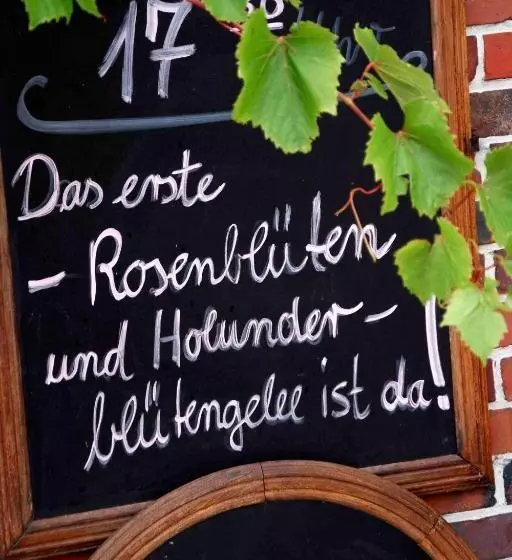 17 Uhr
Das erste
- Rosenblüten
und Holunder-
blütengelee ist da!